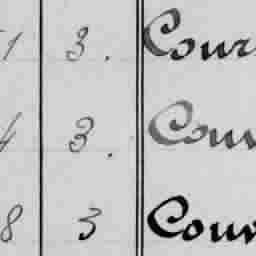 1 3. Cour
4 3. Cour
8 3 Cour